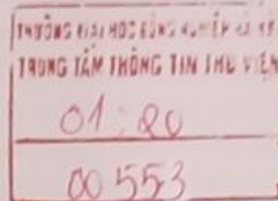 TRƯỜNG ĐẠI HỌC CÔNG NGHIỆP HÀ NỘI
TRUNG TÂM THÔNG TIN THƯ VIỆN
01:20
00553